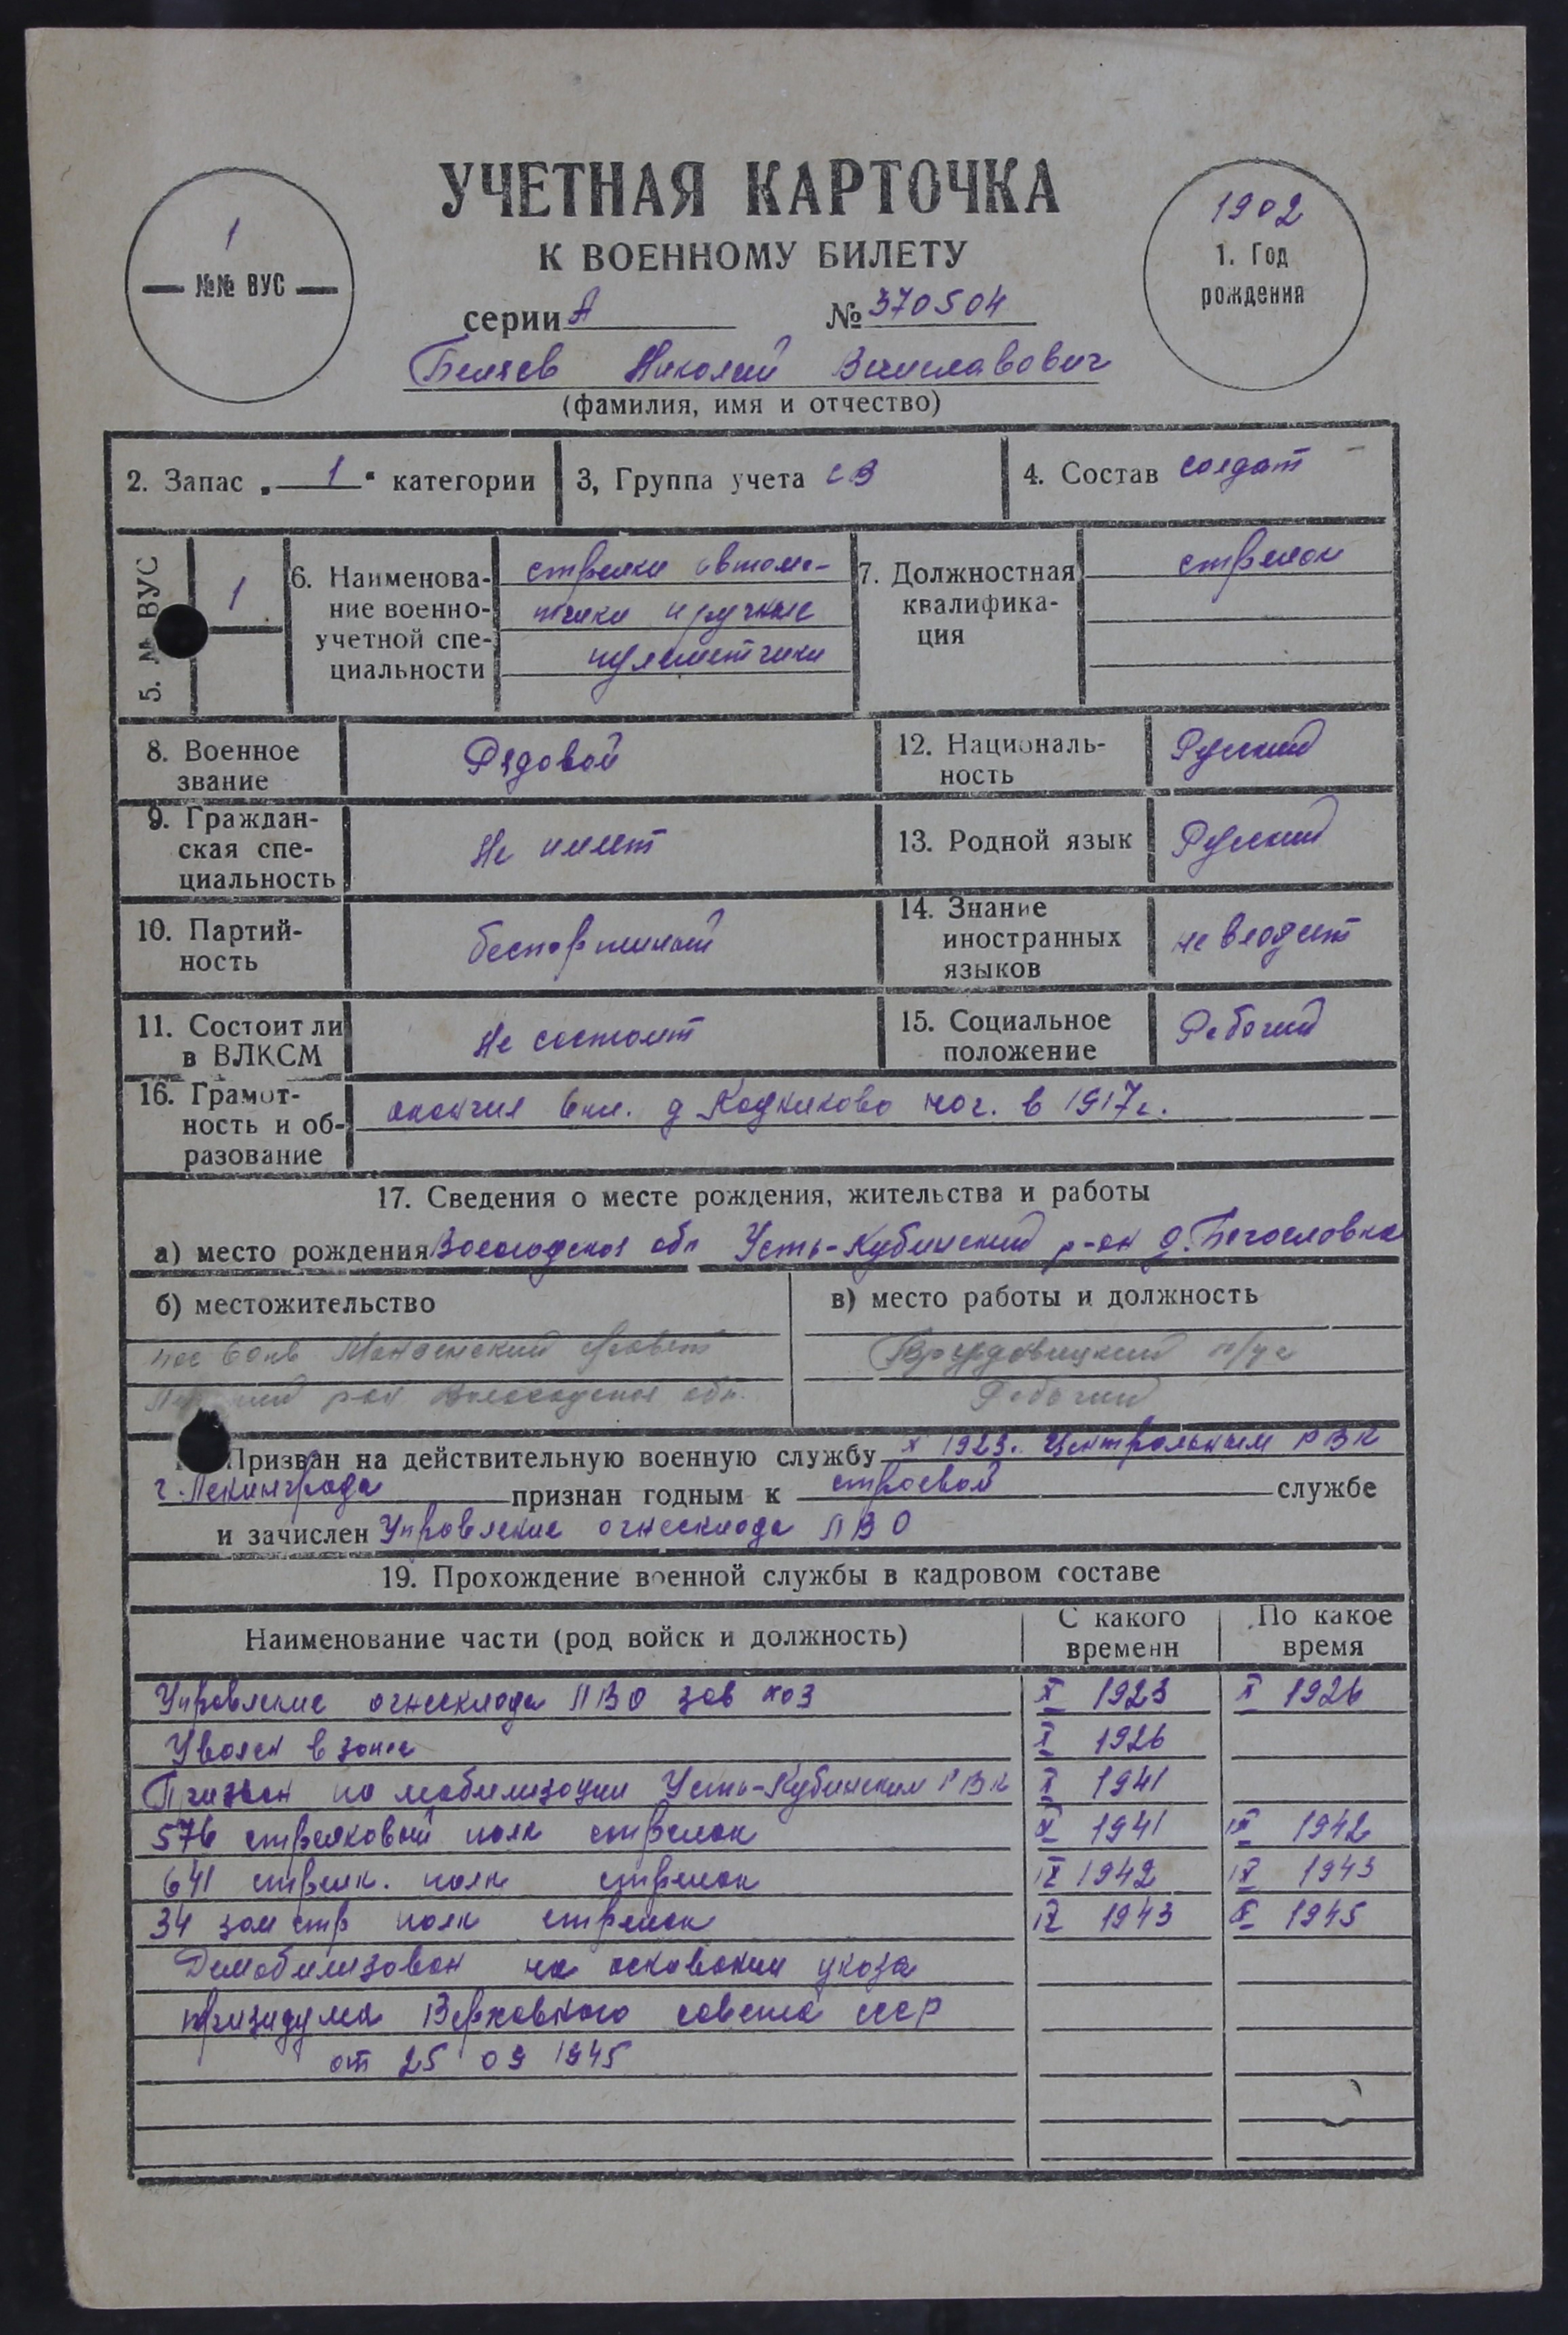 УЧЕТНАЯ КАРТОЧКА
К ВОЕННОМУ БИЛЕТУ
1
№№ ВУС
1902
1. Год
рождения
серии А № 370504
Беляев Николай Вячеславович
(фамилия, имя и отчество)
2. Запас „ 1 “ категории
3, Группа учета СВ
4. Состав солдат
5. ВУС
1
6. Наименова-
ние военно-
учетной спе-
циальности
стрелки автома-
тчики и ручные
пулеметчики
7. Должностная
квалифика-
ция
стрелок
8. Военное
звание
Рядовой
12. Националь-
ность
Русский
9. Граждан-
ская спе-
циальность
Не имеет
13. Родной язык
Русский
10. Партий-
ность
беспартийный
14. Знание
иностранных
языков
не владеет
11. Состоит ли
в ВЛКСМ
Не состоит
15. Социальное
положение
Рабочий
16. Грамот-
ность и об-
разование
окончил 6 кл. д нач. в 1917г.
17. Сведения о месте рождения, жительства и работы
а) место рождения Вологодская обл Усть-Кубинский р-он д. Богословка
б) местожительство
пос 60 кв совет
рон Вологодская обл.
в) место работы и должность
л/уч
Рабочий
Призван на действительную военную службу X 1923. Центральным РВК
г. Ленинграда признан годным к строевой службе
и зачислен Управление огнесклада ЛВО
19. Прохождение военной службы в кадровом составе
Наименование части (род войск и должность)
С какого
времени
По какое
время
Управление огнесклада ЛВО зав X 1923 X 1926
Уволен в запас X 1926
Призван по мобилизации Усть-Кубинским РВК X 1941
576 стрелковый полк стрелок X 1941 IX 1942
641 стрелк. полк стрелок IX 1942 IX 1943
34 зап стр полк стрелок IX 1943 X 1945
Демобилизован на основании указа
призидума Верховного совета СССР
от 25 09 1945